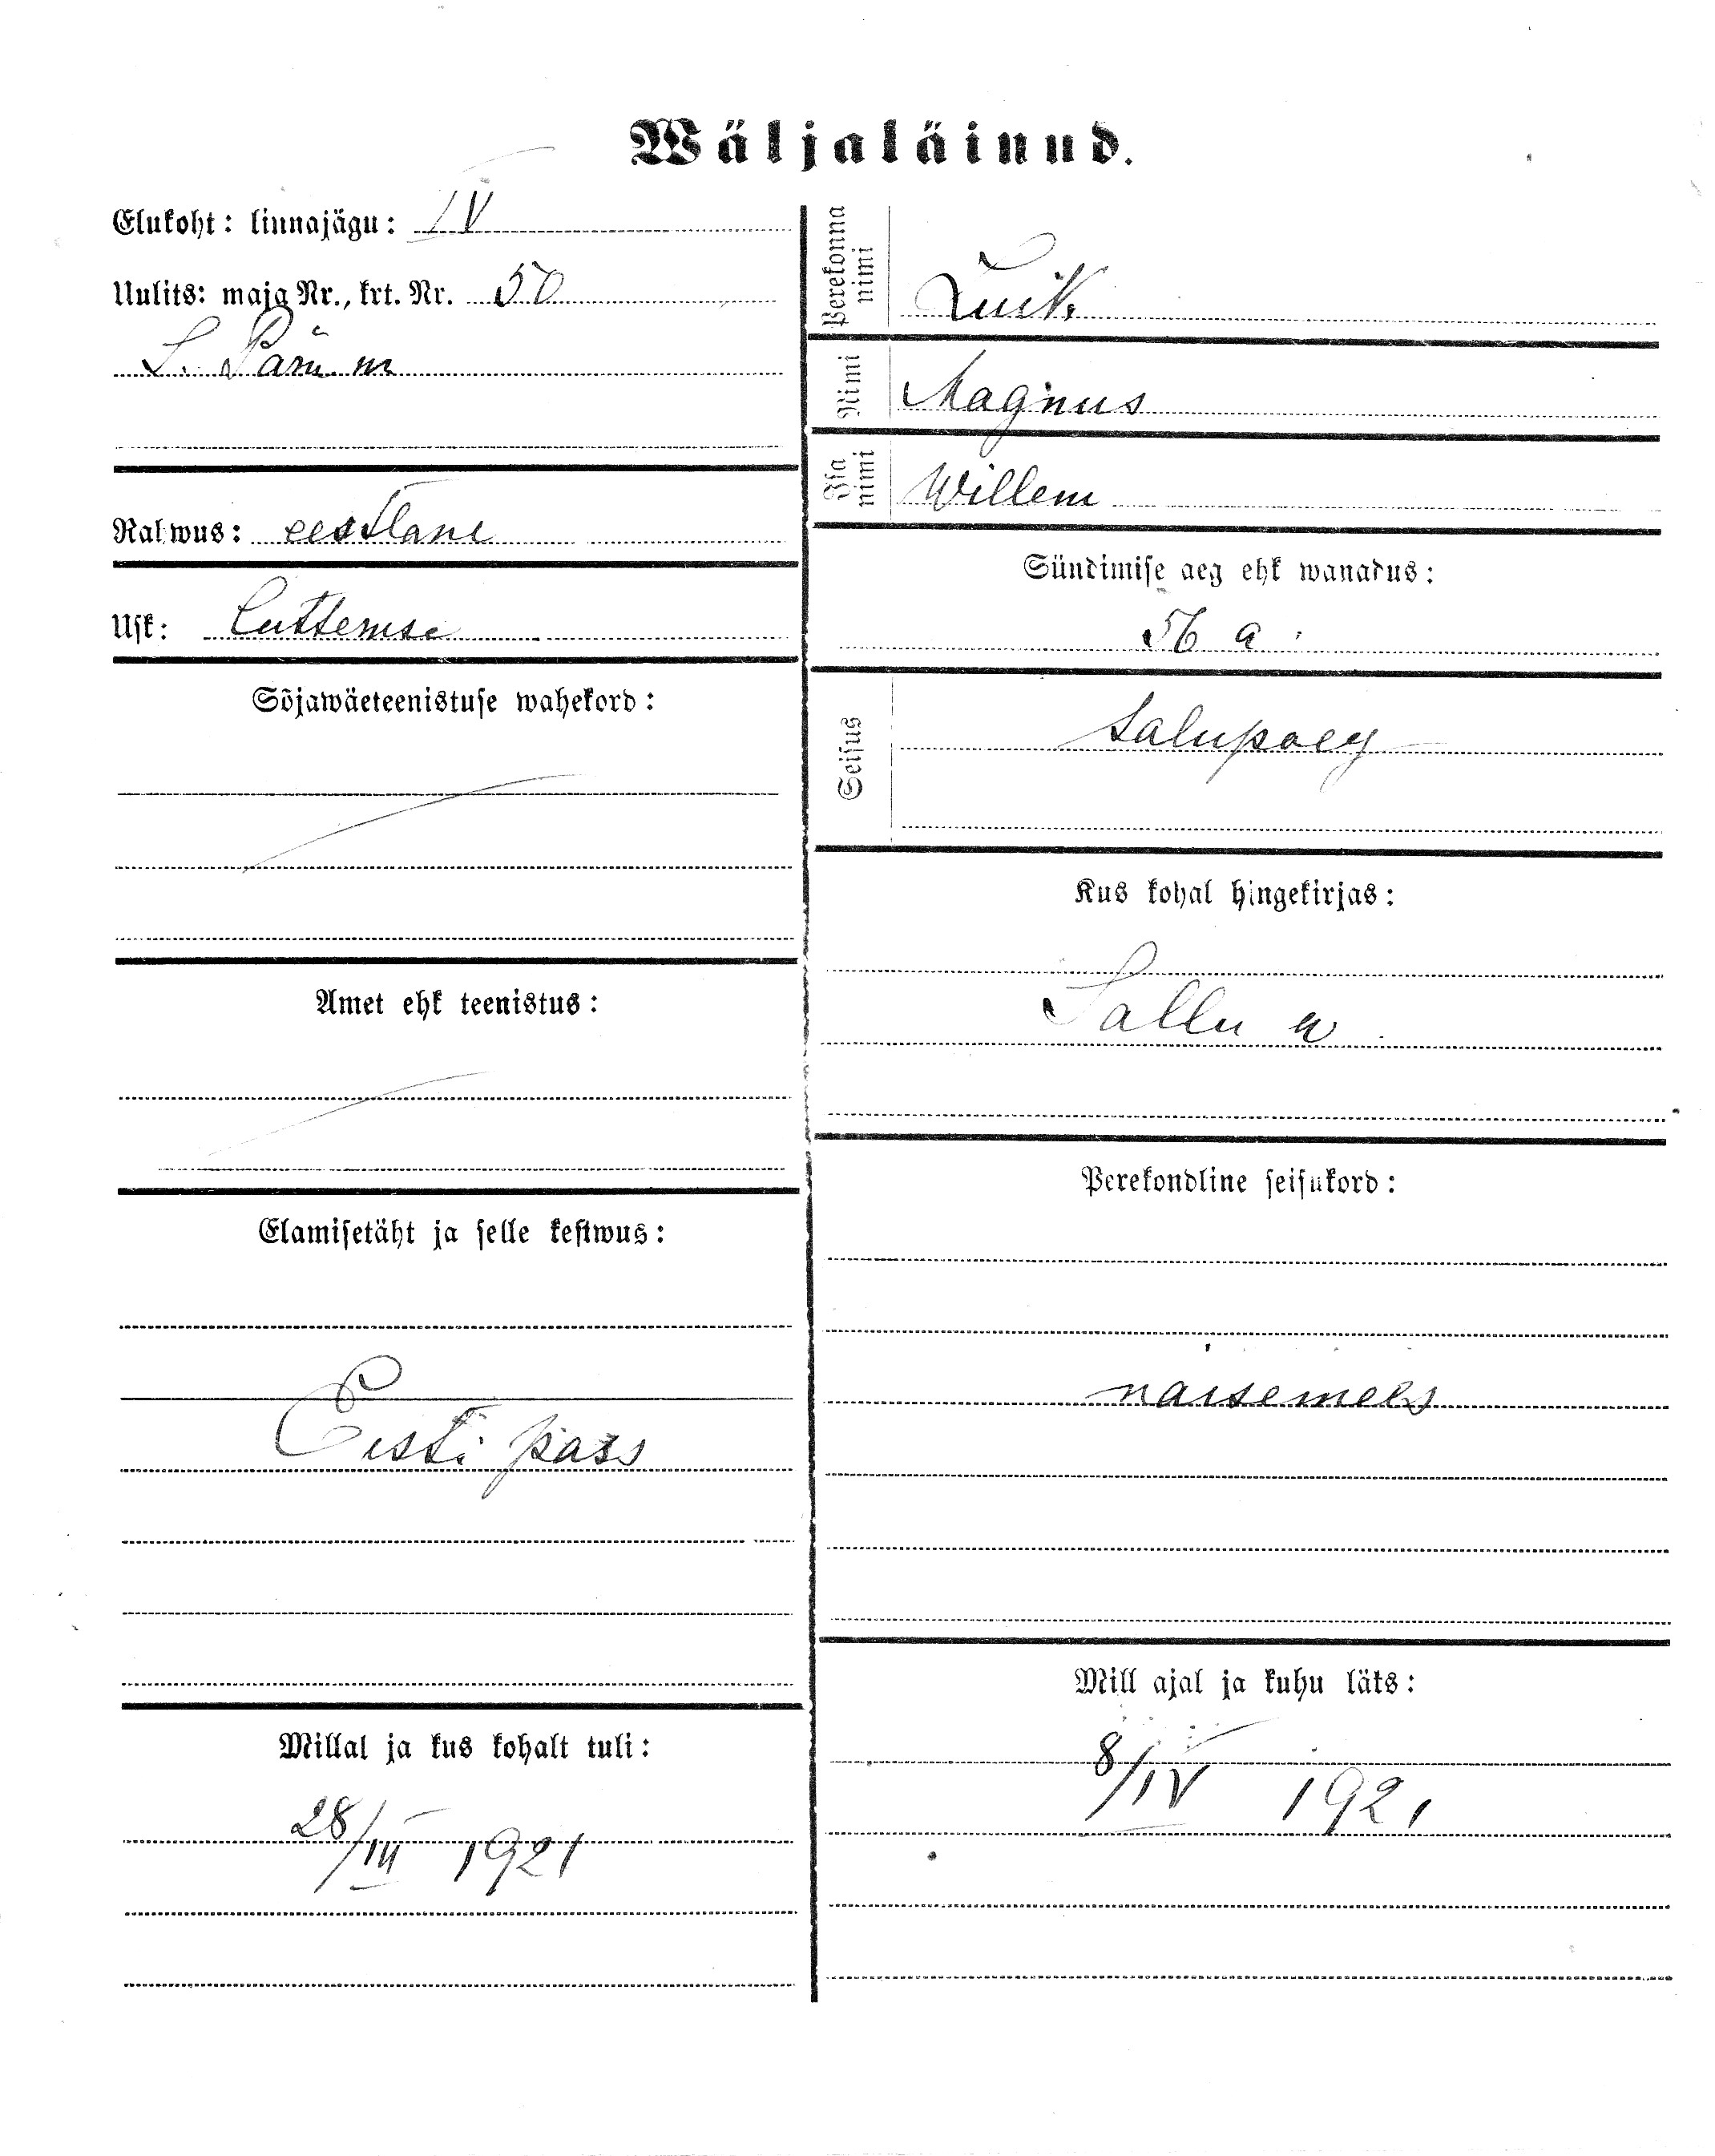 Wäljaläinud.
Elukoht: linnajägu: IV
Uulits: maja Nr., krt. Nr. 50
S. Pärn. m
Rahwus: eestlane
Usk: Lutteruse
Sõjawäeteenistuse wahekord:
Amet ehk teenistus:
Elamisetäht ja selle kestwus:
Eesti pass
Millal ja kus kohalt tuli:
28/III 1921
Perekonna nimi Luik
Nimi Magnus
Isa nimi Willem
Sündimise aeg ehk wanadus:
56 a.
Seisus talupoeg
Kus kohal hingekirjas:
Sallu w.
Perekondline seisukord:
naisemees
Mill ajal ja kuhu läts:
8/IV 1921